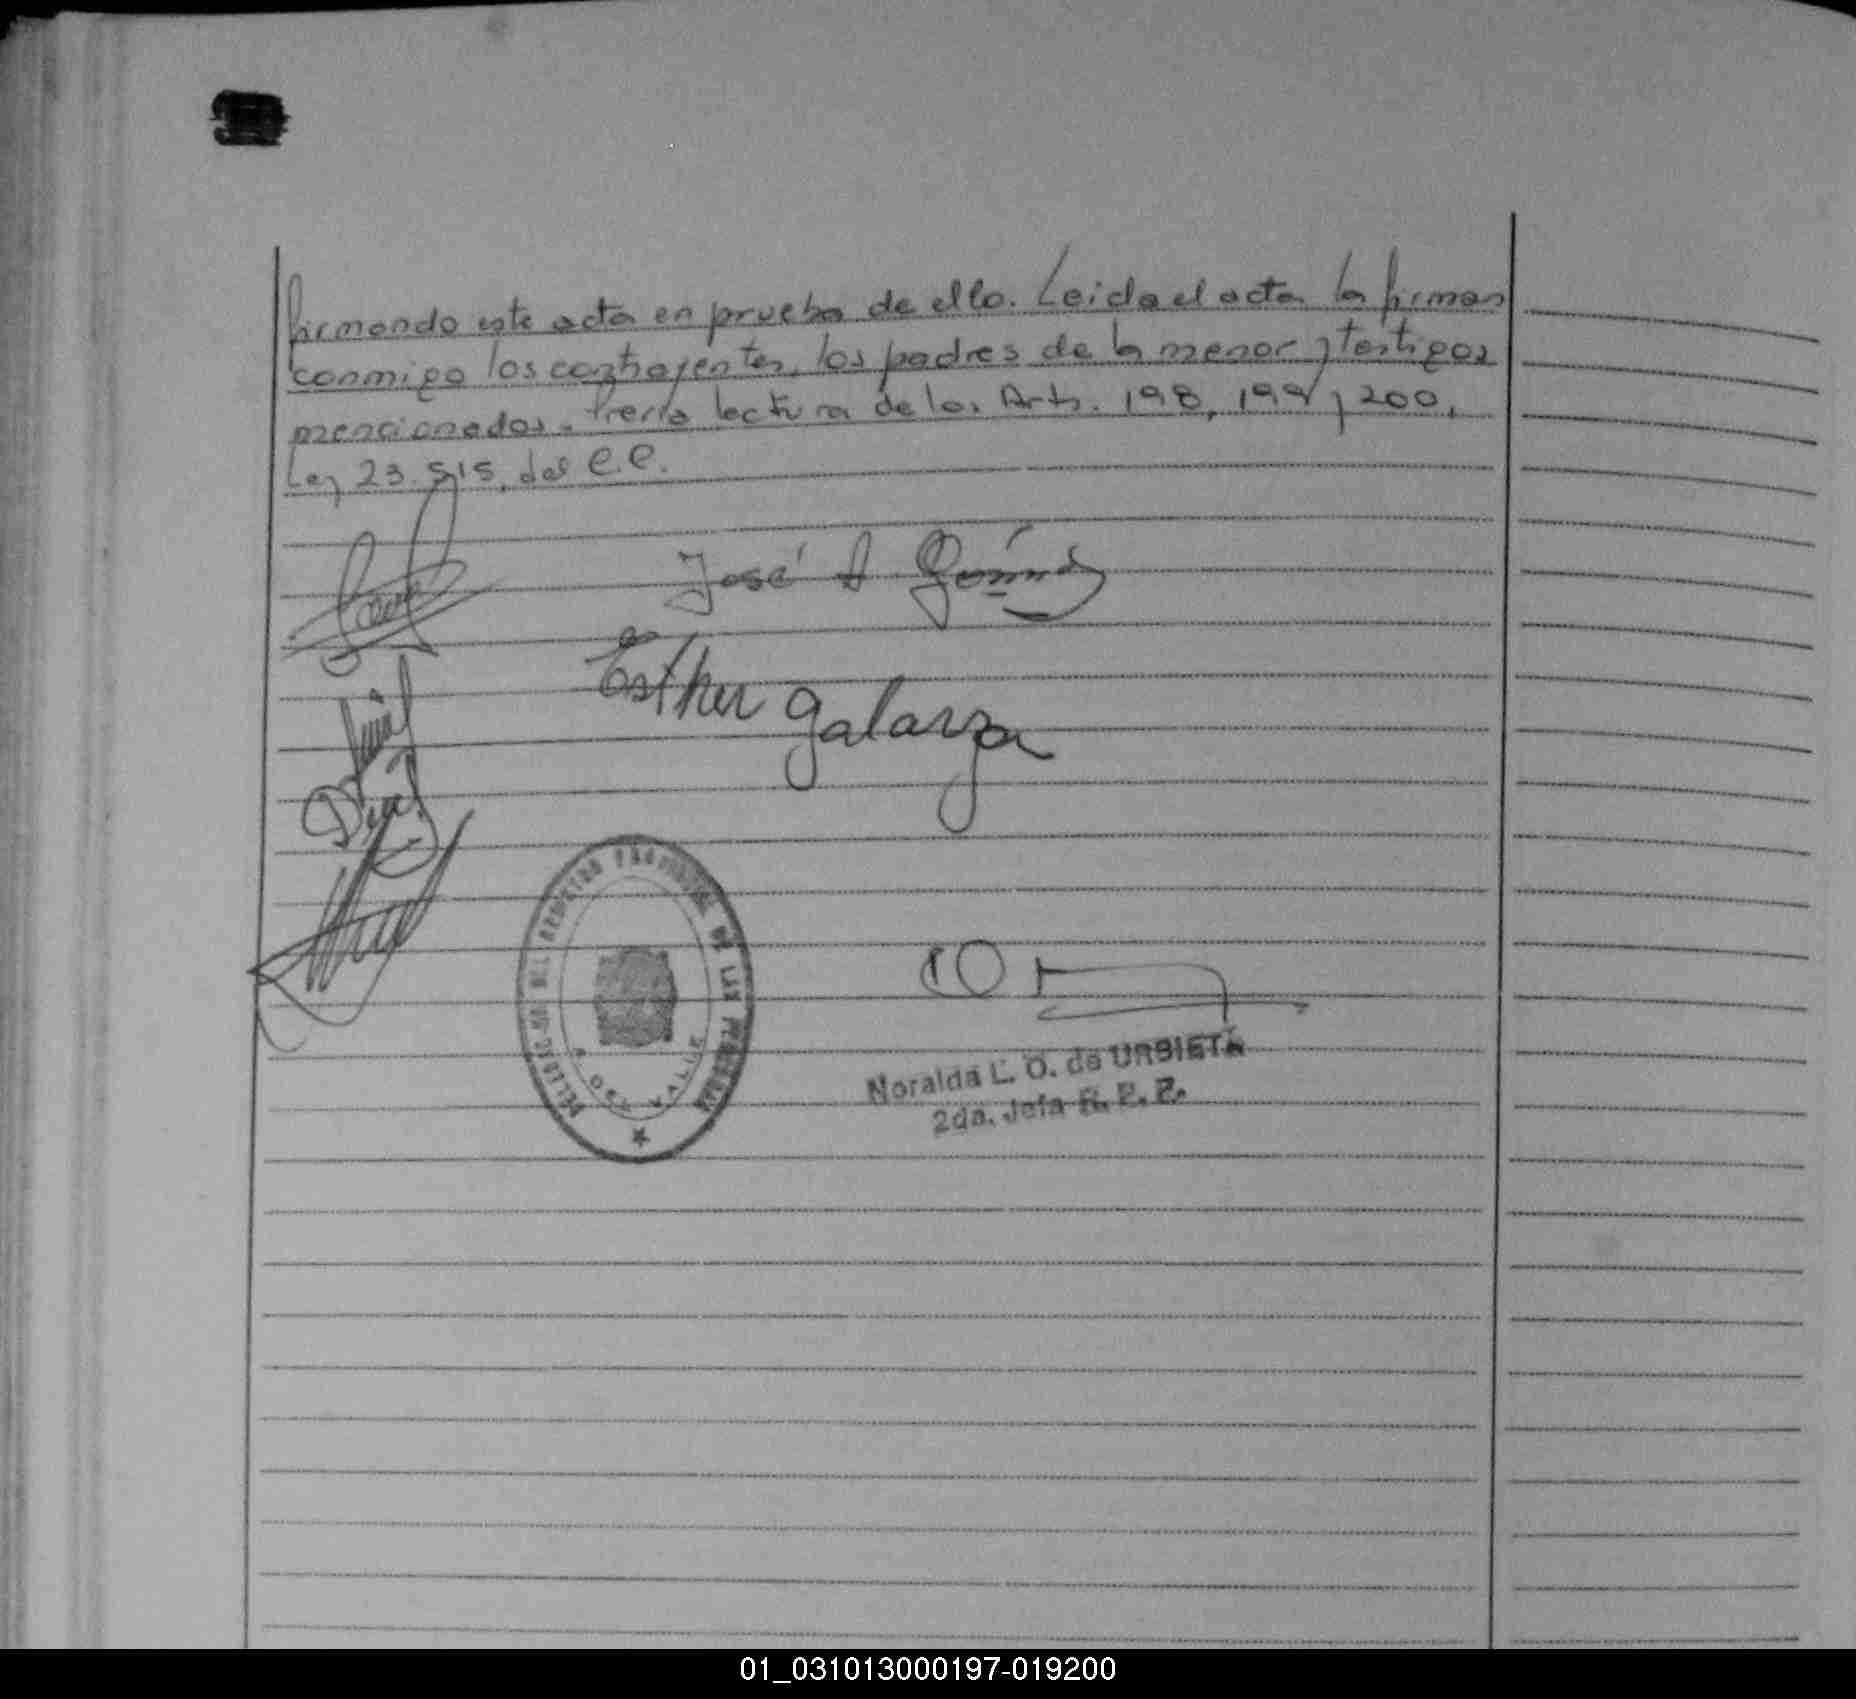 firmando este acta en prueba de ello. Leida el acta la firman
conmigo los contrayentes, los padres de la menor y testigos
mencionados. Previa lectura de los Arts. 198, 199 y 200,
Ley 23.515, del C.C.
José A
Esther Galarza
DEL REGISTRO PROVINCIAL DE LAS PERSONAS
VALLE
Noralda L. O. de URBIETA
2da. Jefa R. P. P.
01_031013000197-019200